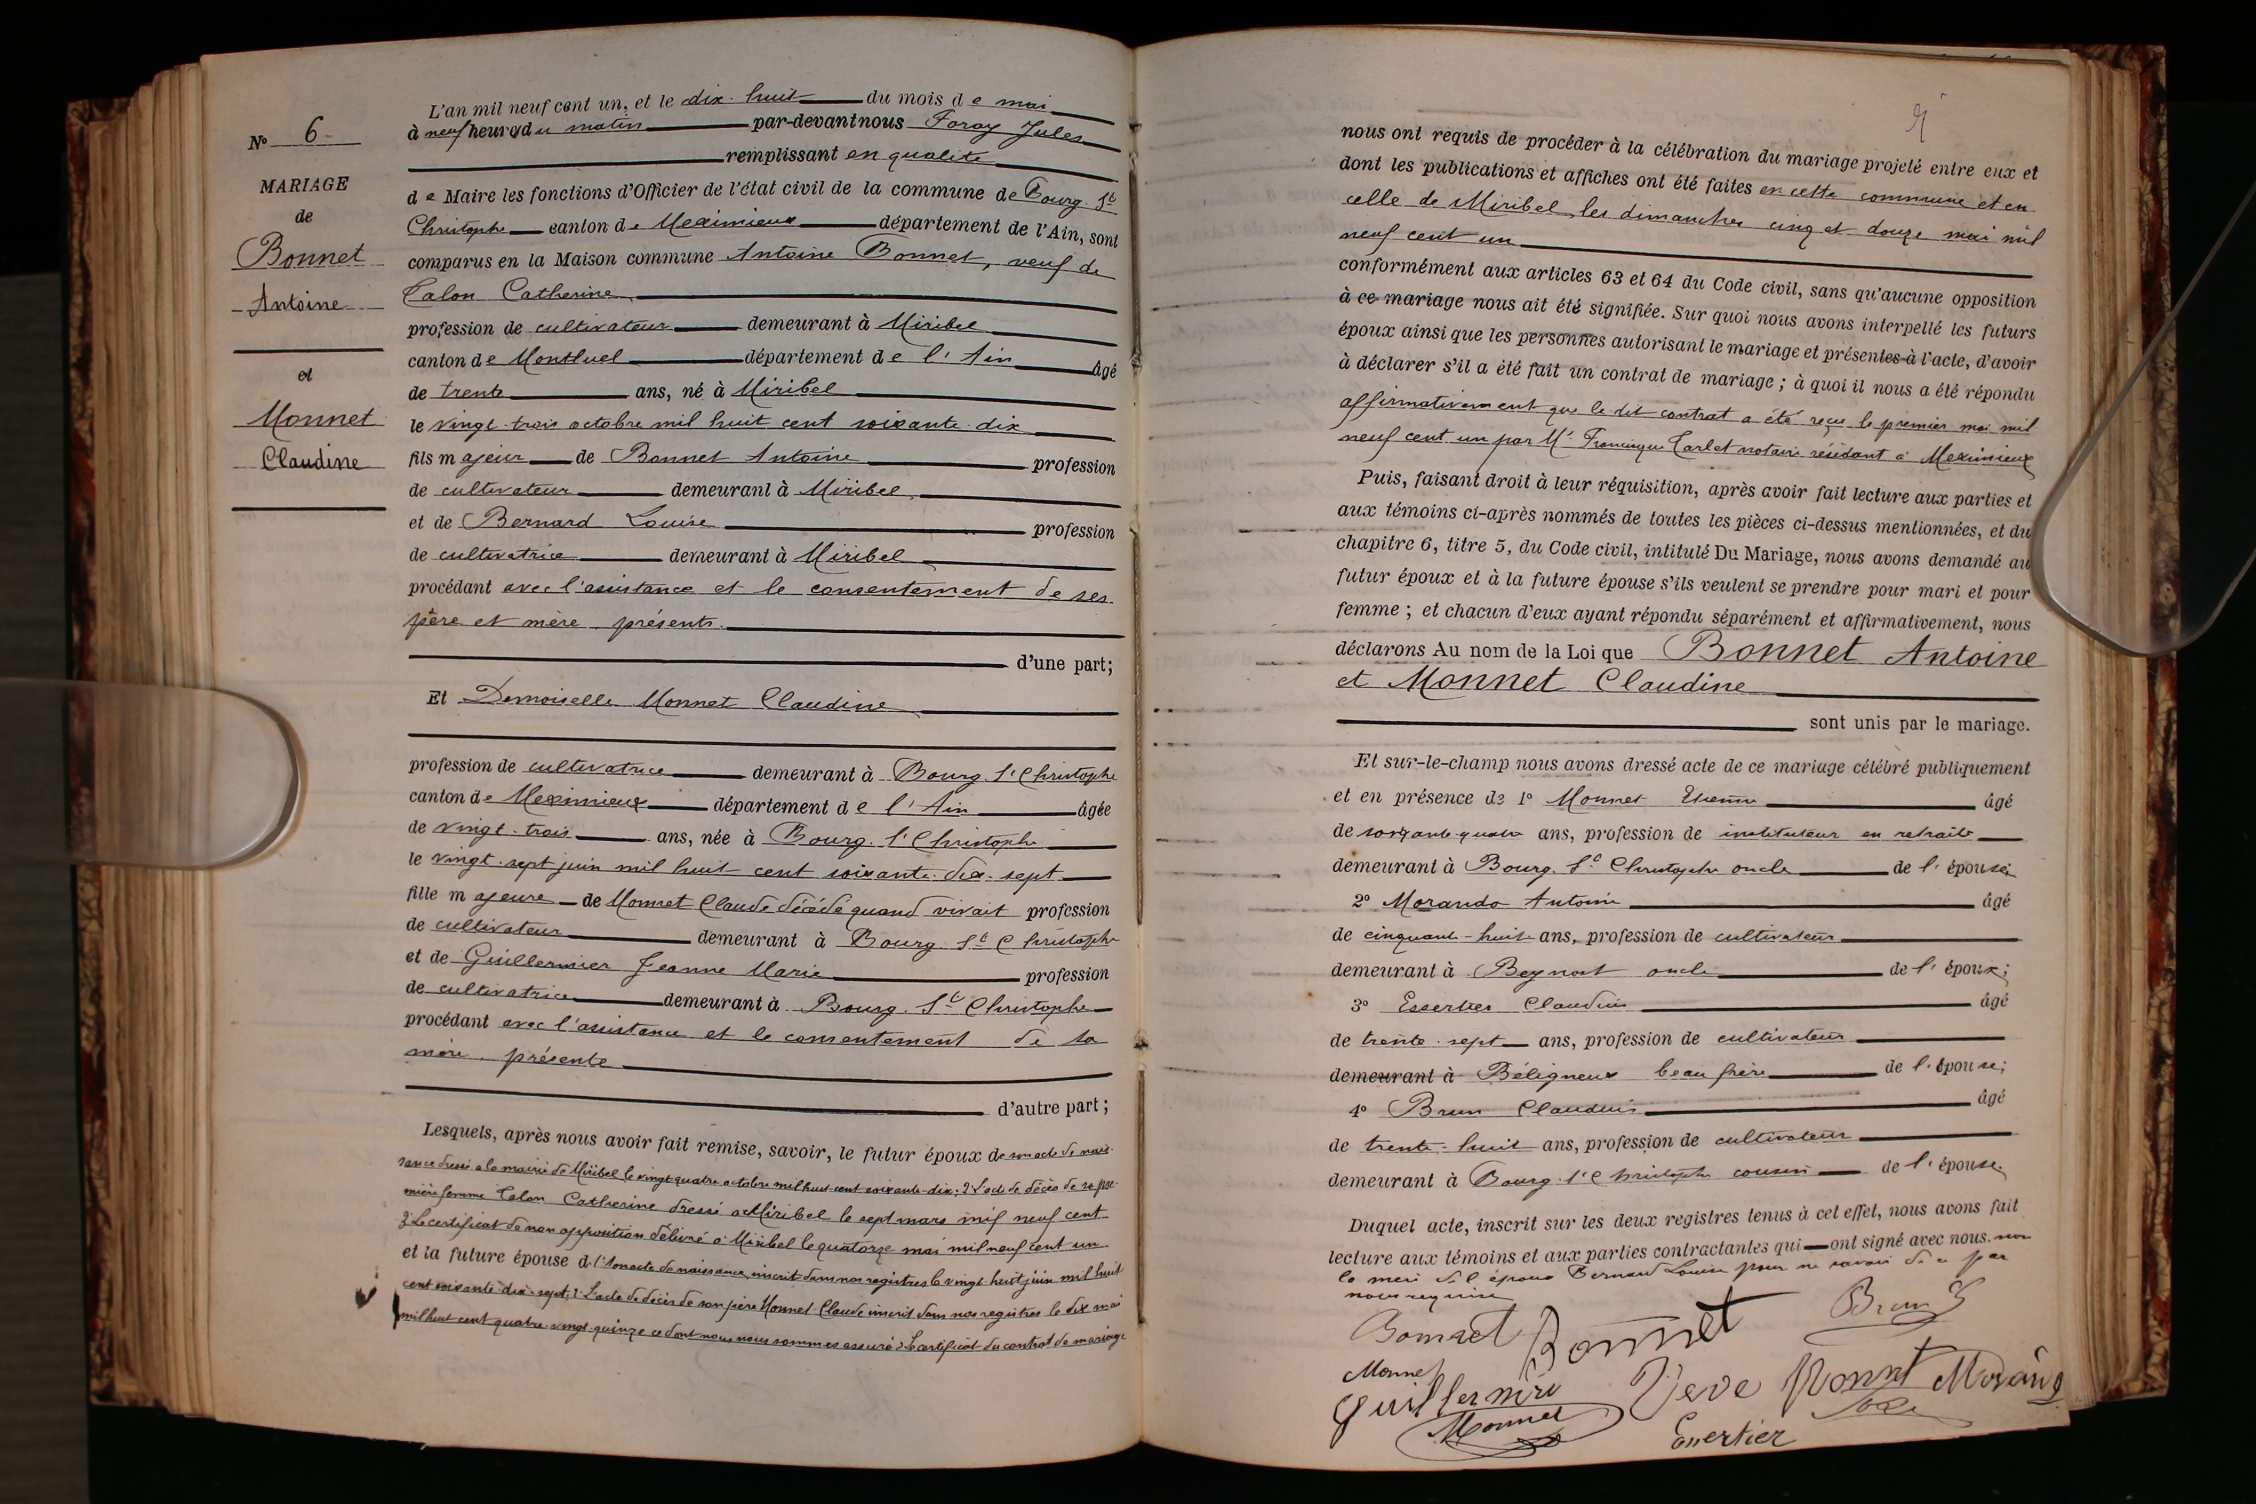 L'an mil neuf cent un, et le dix-huit du mois de mai
N° 6
à neuf heures du matin par-devant nous Foray Jules
remplissant en qualité
MARIAGE
de Maire les fonctions d'Officier de l'état civil de la commune de Bourg St
de
Christophe canton de Meximieux département de l'Ain, sont
Bonnet
comparus en la Maison commune Antoine Bonnet, veuf de
Antoine
Calon Catherine
profession de cultivateur demeurant à Miribel
canton de Montluel département de l'Ain âgé
et
de trente ans, né à Miribel
Monnet
le vingt-trois octobre mil huit cent soixante-dix
Claudine
fils majeur de Bonnet Antoine profession
de cultivateur demeurant à Miribel
et de Bernard Louise profession
de cultivatrice demeurant à Miribel
procédant avec l'assistance et le consentement de ses
père et mère présents.
d'une part;
Et Demoiselle Monnet Claudine
profession de cultivatrice demeurant à Bourg St Christophe
canton de Meximieux département de l'Ain âgée
de vingt-trois ans, née à Bourg St Christophe
le vingt-sept juin mil huit cent soixante-dix-sept
fille majeure de Monnet Claude décédé quand vivait profession
de cultivateur demeurant à Bourg St Christophe
et de Guillermier Jeanne Marie profession
de cultivatrice demeurant à Bourg St Christophe
procédant avec l'assistance et le consentement de sa
mère présente
d'autre part;
Lesquels, après nous avoir fait remise, savoir, le futur époux de son acte de nais-
sance dressé à la mairie de Miribel le vingt quatre octobre mil huit cent soixante dix; 2° L'acte de décès de sa pre-
mière femme Calon Catherine dressé à Miribel le sept mars mil neuf cent
3° Le certificat de non opposition délivré à Miribel le quatorze mai mil neuf cent un
et la future épouse de 1° son acte de naissance inscrit dans nos registres le vingt-huit juin mil huit
cent soixante dix-sept; 2° L'acte de décès de son père Monnet Claude inscrit dans nos registres le dix mai
mil huit cent quatre-vingt-quinze ce dont nous nous sommes assuré 3° Le certificat du contrat de mariage
nous ont requis de procéder à la célébration du mariage projeté entre eux et
dont les publications et affiches ont été faites en cette commune et en
celle de Miribel les dimanches cinq et douze mai mil
neuf cent un
conformément aux articles 63 et 64 du Code civil, sans qu'aucune opposition
à ce mariage nous ait été signifiée. Sur quoi nous avons interpellé les futurs
époux ainsi que les personnes autorisant le mariage et présentes à l'acte, d'avoir
à déclarer s'il a été fait un contrat de mariage; à quoi il nous a été répondu
affirmativement que le dit contrat a été reçu le premier mai mil
neuf cent un par Me Francisque Carlet notaire résidant à Meximieux
Puis, faisant droit à leur réquisition, après avoir fait lecture aux parties et
aux témoins ci-après nommés de toutes les pièces ci-dessus mentionnées, et du
chapitre 6, titre 5, du Code civil, intitulé Du Mariage, nous avons demandé au
futur époux et à la future épouse s'ils veulent se prendre pour mari et pour
femme; et chacun d'eux ayant répondu séparément et affirmativement, nous
déclarons Au nom de la Loi que Bonnet Antoine
et Monnet Claudine
sont unis par le mariage.
Et sur-le-champ nous avons dressé acte de ce mariage célébré publiquement
et en présence de 1° Monnet Etienne âgé
de soixante-quatre ans, profession de instituteur en retraite
demeurant à Bourg St Christophe oncle de l'épouse;
2° Morando Antoine âgé
de cinquante-huit ans, profession de cultivateur
demeurant à Beynost oncle de l'époux;
3° Essertier Claudius âgé
de trente-sept ans, profession de cultivateur
demeurant à Béligneux beau frère de l'épouse;
4° Brun Claudius âgé
de trente-huit ans, profession de cultivateur
demeurant à Bourg St Christophe cousin de l'épouse.
Duquel acte, inscrit sur les deux registres tenus à cet effet, nous avons fait
lecture aux témoins et aux parties contractantes qui ont signé avec nous. non
la mère de l'époux Bernard Louise pour ne savoir de ce par
nous requise
Bonnet Bonnet Brun
Monnet
Guillermier Veve Monnet Morando
Monnet
Essertier